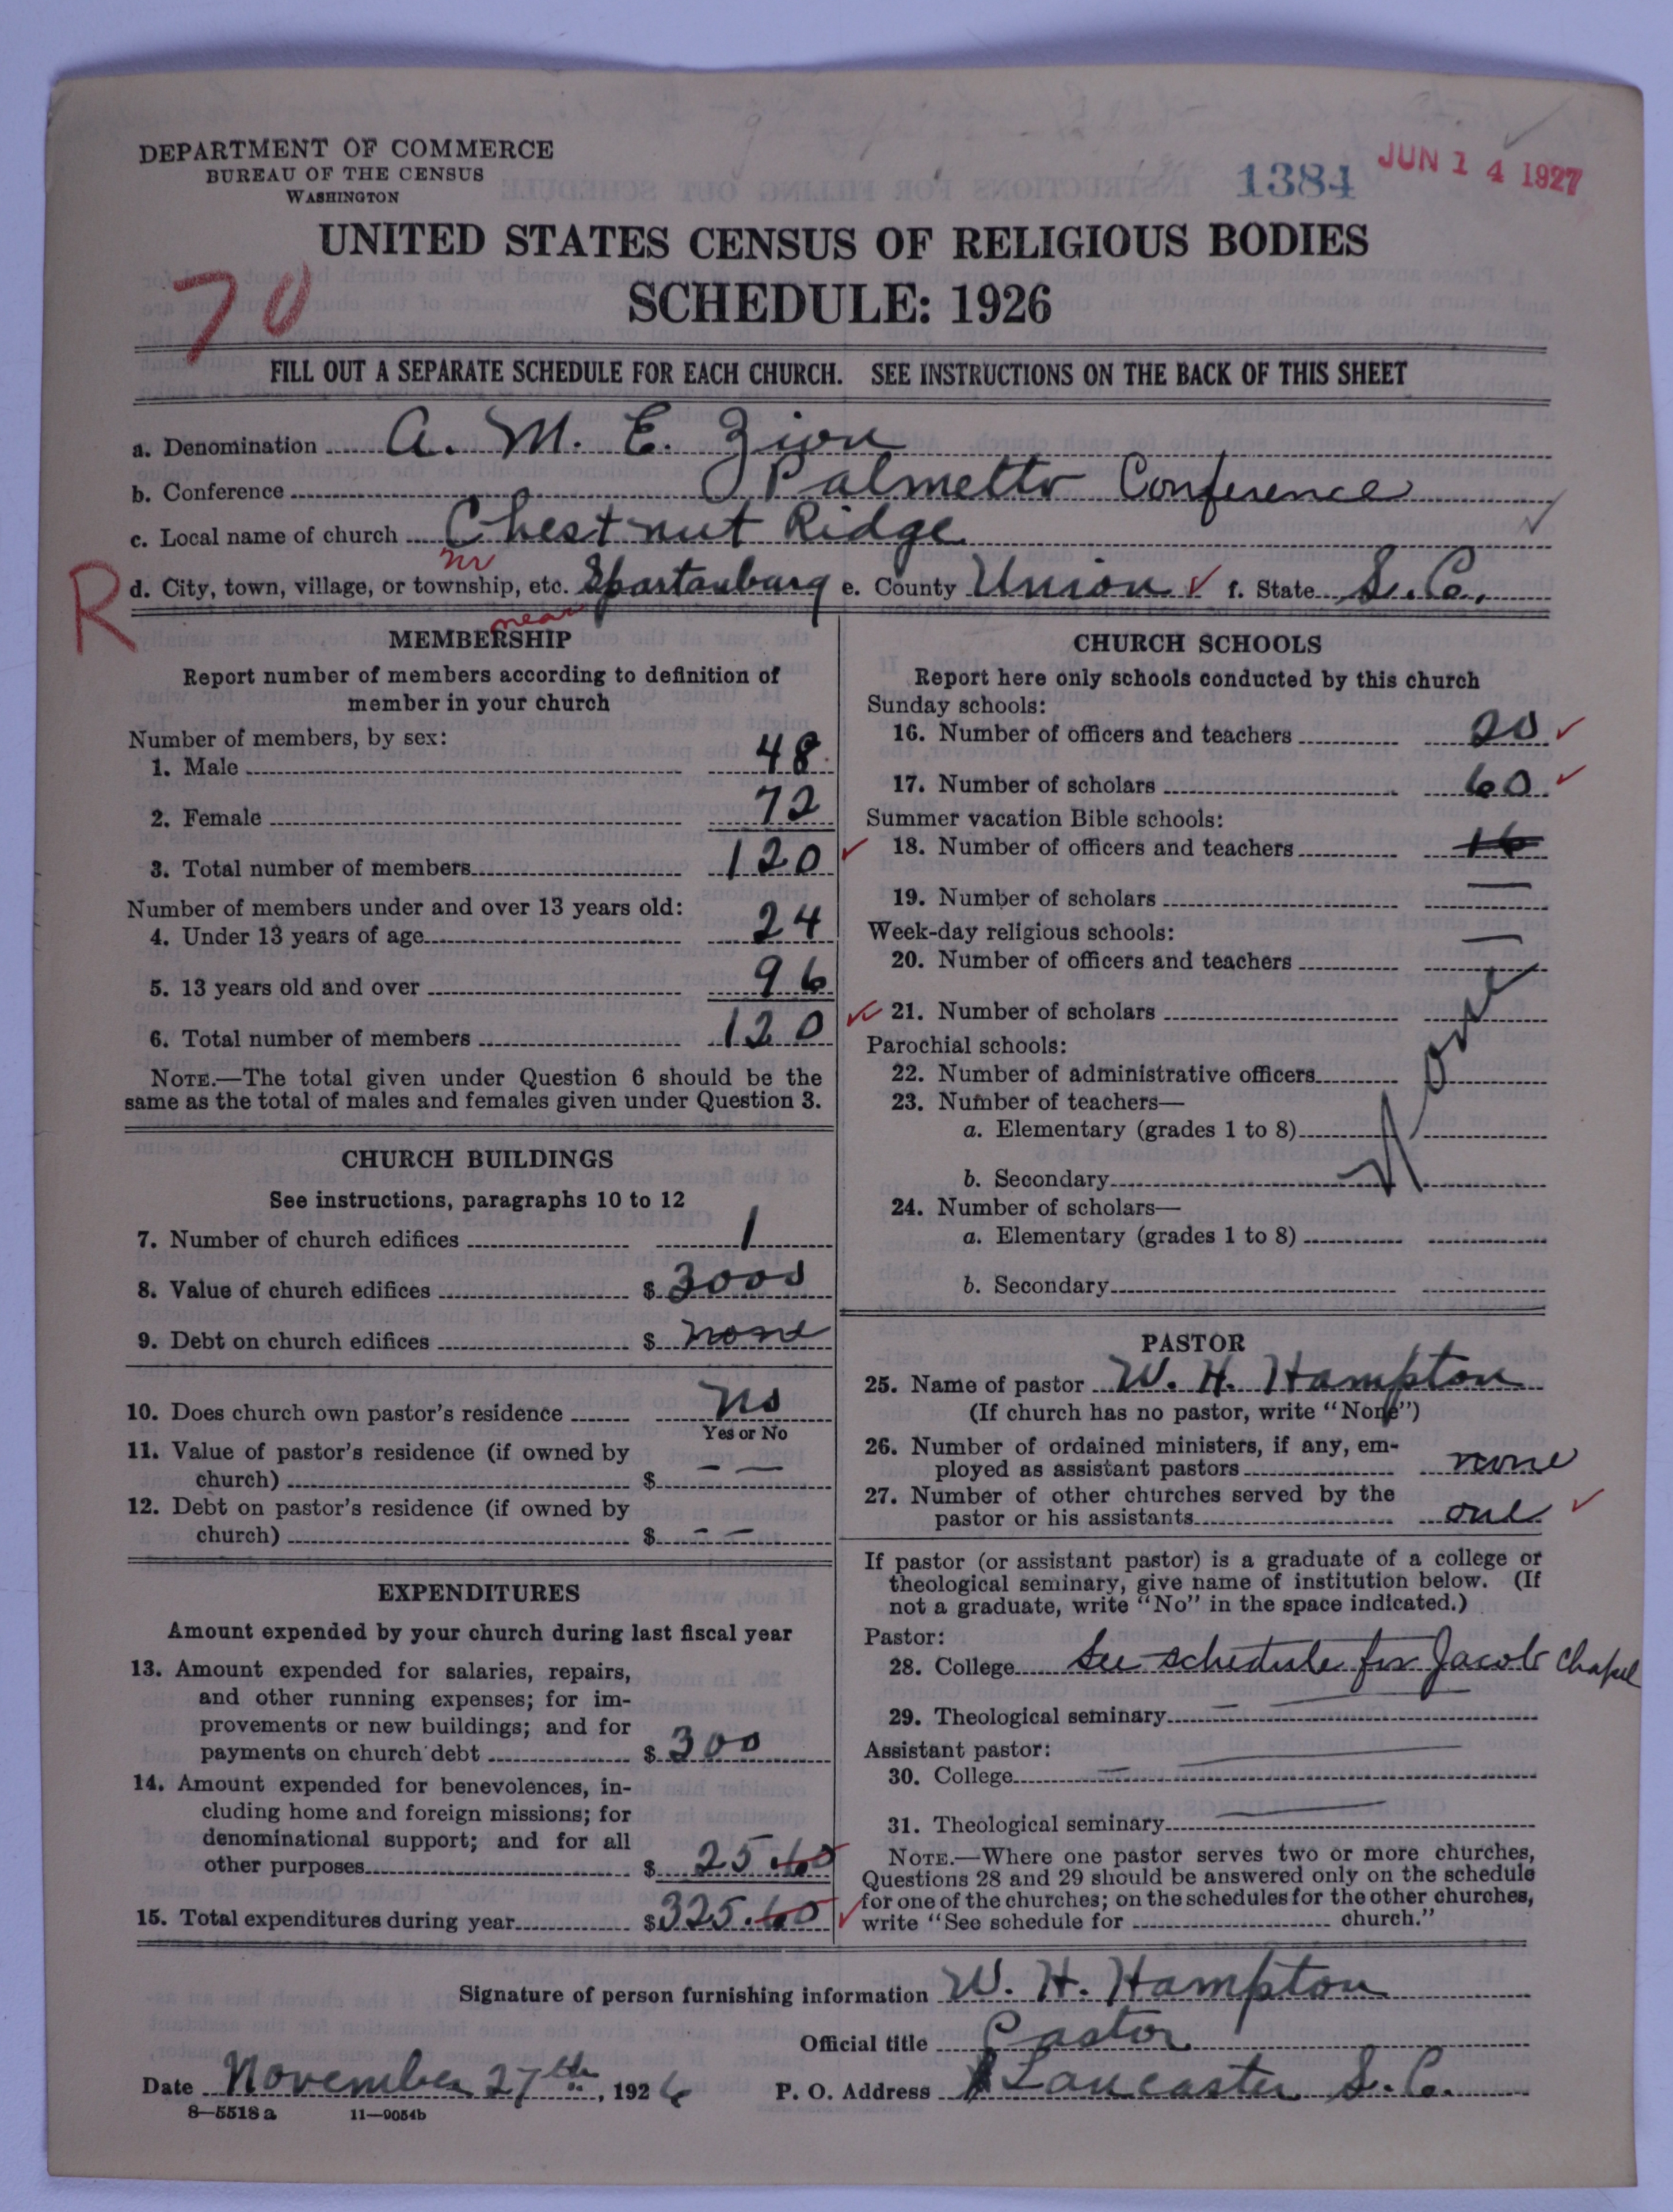 DEPARTMENT OF COMMERCE
BUREAU OF THE CENSUS
WASHINGTON
1384
JUN 14 1927
UNITED STATES CENSUS OF RELIGIOUS BODIES
SCHEDULE: 1926
70
FILL OUT A SEPARATE SCHEDULE FOR EACH CHURCH. SEE INSTRUCTIONS ON THE BACK OF THIS SHEET
a. Denomination A. M. E. Zion
b. Conference Palmetto Conference
c. Local name of church Chestnut Ridge
nr
R d. City, town, village, or township, etc. Spartanburg e. County Union f. State S. C.
near
MEMBERSHIP
Report number of members according to definition of
member in your church
Number of members, by sex:
1. Male 48
2. Female 72
3. Total number of members 120
Number of members under and over 13 years old:
4. Under 13 years of age 24
5. 13 years old and over 96
6. Total number of members 120
NOTE.—The total given under Question 6 should be the
same as the total of males and females given under Question 3.
CHURCH BUILDINGS
See instructions, paragraphs 10 to 12
7. Number of church edifices 1
8. Value of church edifices $ 3000
9. Debt on church edifices $ none
10. Does church own pastor's residence No
Yes or No
11. Value of pastor's residence (if owned by
church) $ — —
12. Debt on pastor's residence (if owned by
church) $ — —
EXPENDITURES
Amount expended by your church during last fiscal year
13. Amount expended for salaries, repairs,
and other running expenses; for im-
provements or new buildings; and for
payments on church debt $ 300
14. Amount expended for benevolences, in-
cluding home and foreign missions; for
denominational support; and for all
other purposes $ 25.60
15. Total expenditures during year $325.60
CHURCH SCHOOLS
Report here only schools conducted by this church
Sunday schools:
16. Number of officers and teachers 20
17. Number of scholars 60
Summer vacation Bible schools:
18. Number of officers and teachers 16
19. Number of scholars —
Week-day religious schools:
20. Number of officers and teachers —
21. Number of scholars
Parochial schools:
22. Number of administrative officers
23. Number of teachers—
a. Elementary (grades 1 to 8)
b. Secondary None
24. Number of scholars—
a. Elementary (grades 1 to 8)
b. Secondary
PASTOR
25. Name of pastor W. H. Hampton
(If church has no pastor, write "None")
26. Number of ordained ministers, if any, em-
ployed as assistant pastors none
27. Number of other churches served by the
pastor or his assistants one
If pastor (or assistant pastor) is a graduate of a college or
theological seminary, give name of institution below. (If
not a graduate, write "No" in the space indicated.)
Pastor:
28. College See schedule for Jacob Chapel
29. Theological seminary
Assistant pastor:
30. College
31. Theological seminary
NOTE.—Where one pastor serves two or more churches,
Questions 28 and 29 should be answered only on the schedule
for one of the churches; on the schedules for the other churches,
write "See schedule for church."
Signature of person furnishing information W. H. Hampton
Official title Pastor
Date November 27th, 1926 P. O. Address Lancaster S. C.
8—5518a 11—9054b